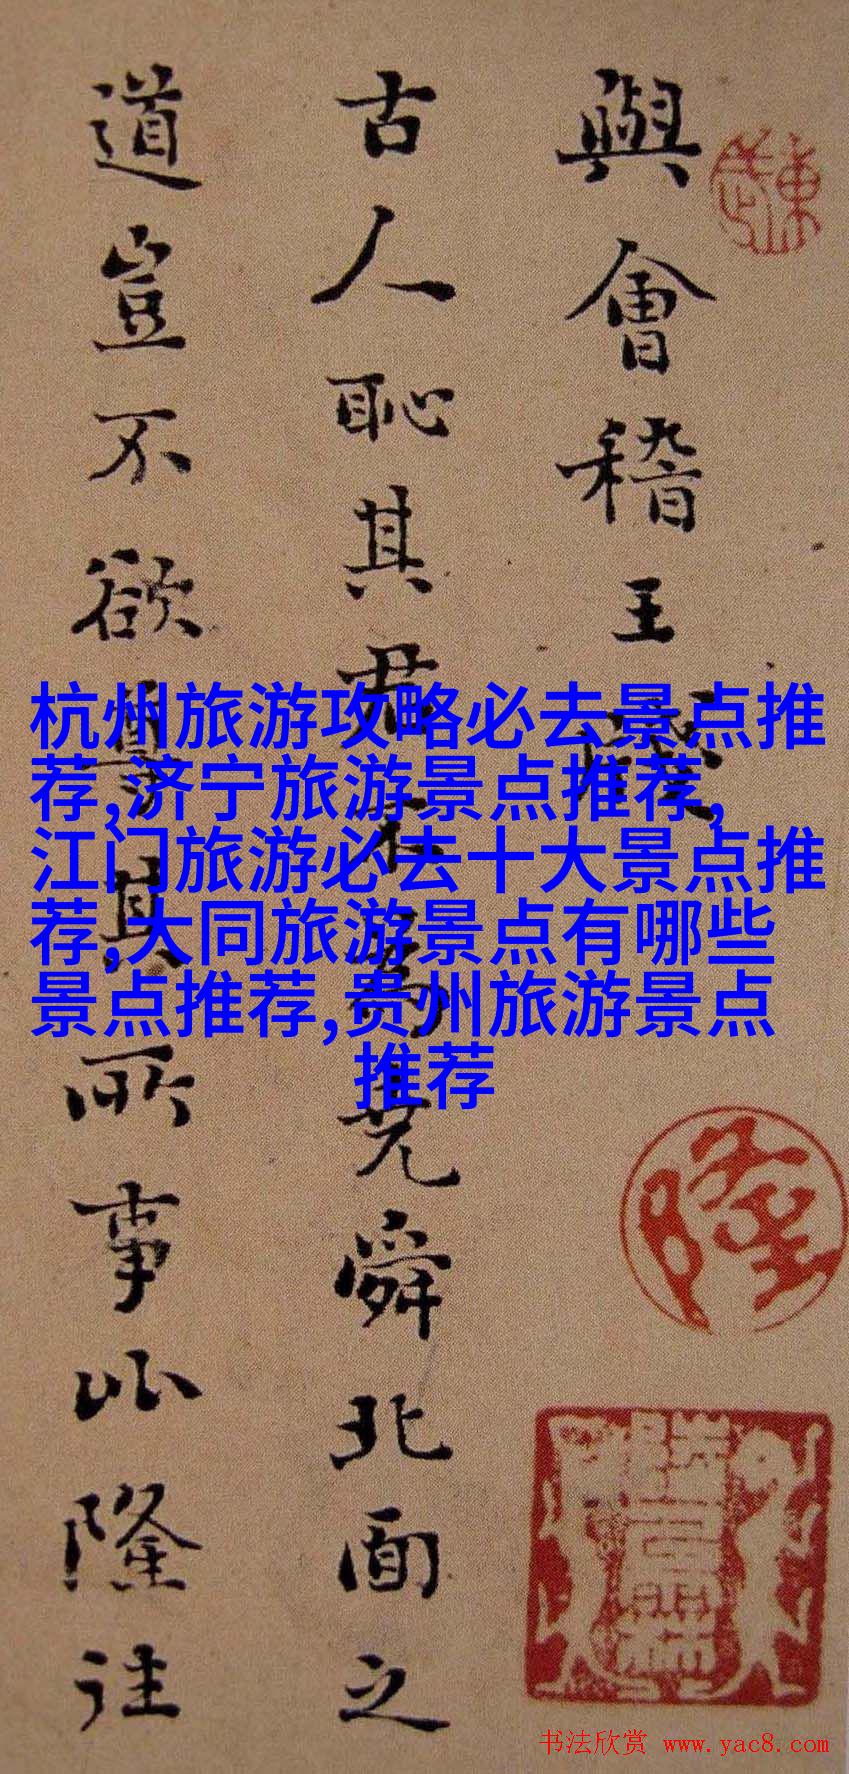 與會稽王牋
古人恥其君不為堯舜北面之
道豈不欲尊其所事比隆往
杭州旅游攻略必去景点推
荐,济宁旅游景点推荐,
江门旅游必去十大景点推
荐,大同旅游景点有哪些
景点推荐,贵州旅游景点
推荐
隆
书法欣赏 www.yac8.com